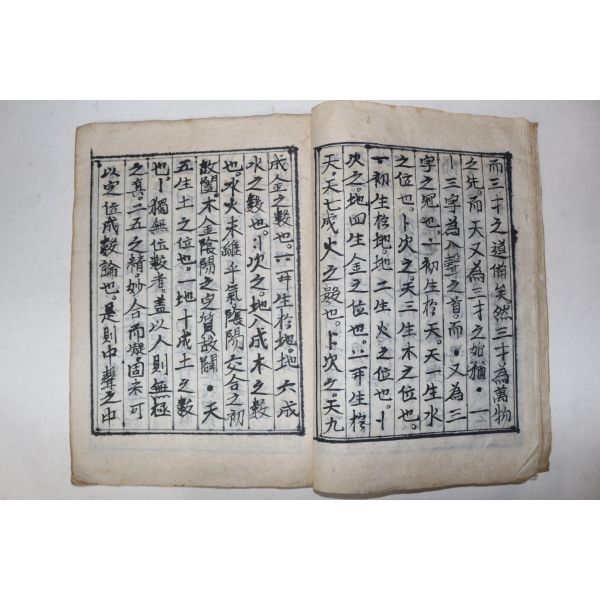 而三才之道備矣。然三才為萬物
之先。而天又為三才之始。猶・ㅡ
ㅣ三字為八聲之首。而・又為三
字之冠也。ㅗ初生於天。天一生水
之位也。ㅏ次之。天三生木之位也。
ㅜ初生於地。地二生火之位也。ㅓ
次之。地四生金之位也。ㅛ再生於
天。天七成火之數也。ㅑ次之。天九
成金之數也。ㅠ再生於地。地六成
水之數也。ㅕ次之。地八成木之數
也。水火未離乎氣。陰陽交合之初
故闔。木金陰陽之定質。故闢。・天
五生土之位也。ㅡ地十成土之數
也。ㅣ獨無位數者。盖以人則無極
之真。二五之精。妙合而凝。固未可
以定位成數論也。是則中聲之中